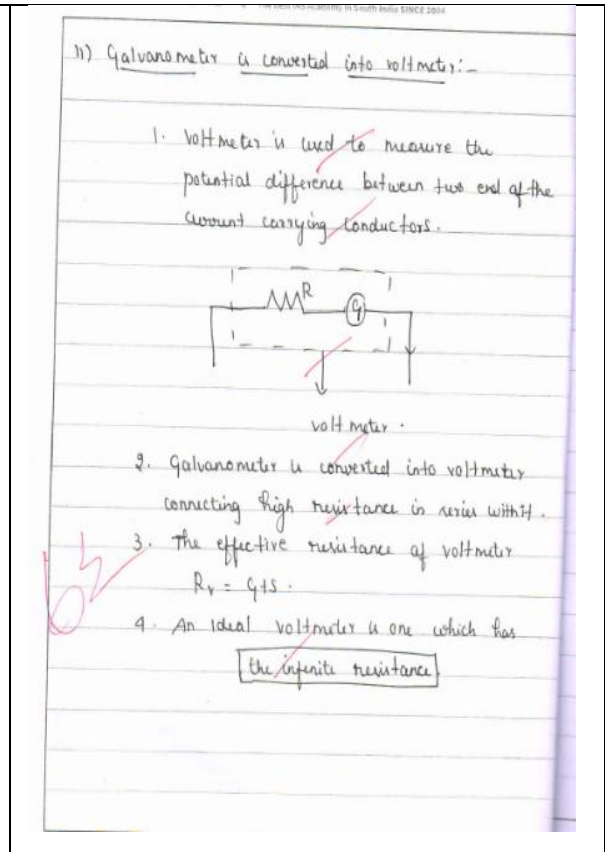 The Best IAS Academy in South India SINCE 2004
11) Galvanometer is converted into voltmeter:-
1. Voltmeter is used to measure the
potential difference between two end of the
current carrying conductors.
R
G
voltmeter.
2. Galvanometer is converted into voltmeter
connecting high resistance in series with it.
3. The effective resistance of voltmeter
Rv = G+S.
4. An Ideal voltmeter is one which has
the infinite resistance